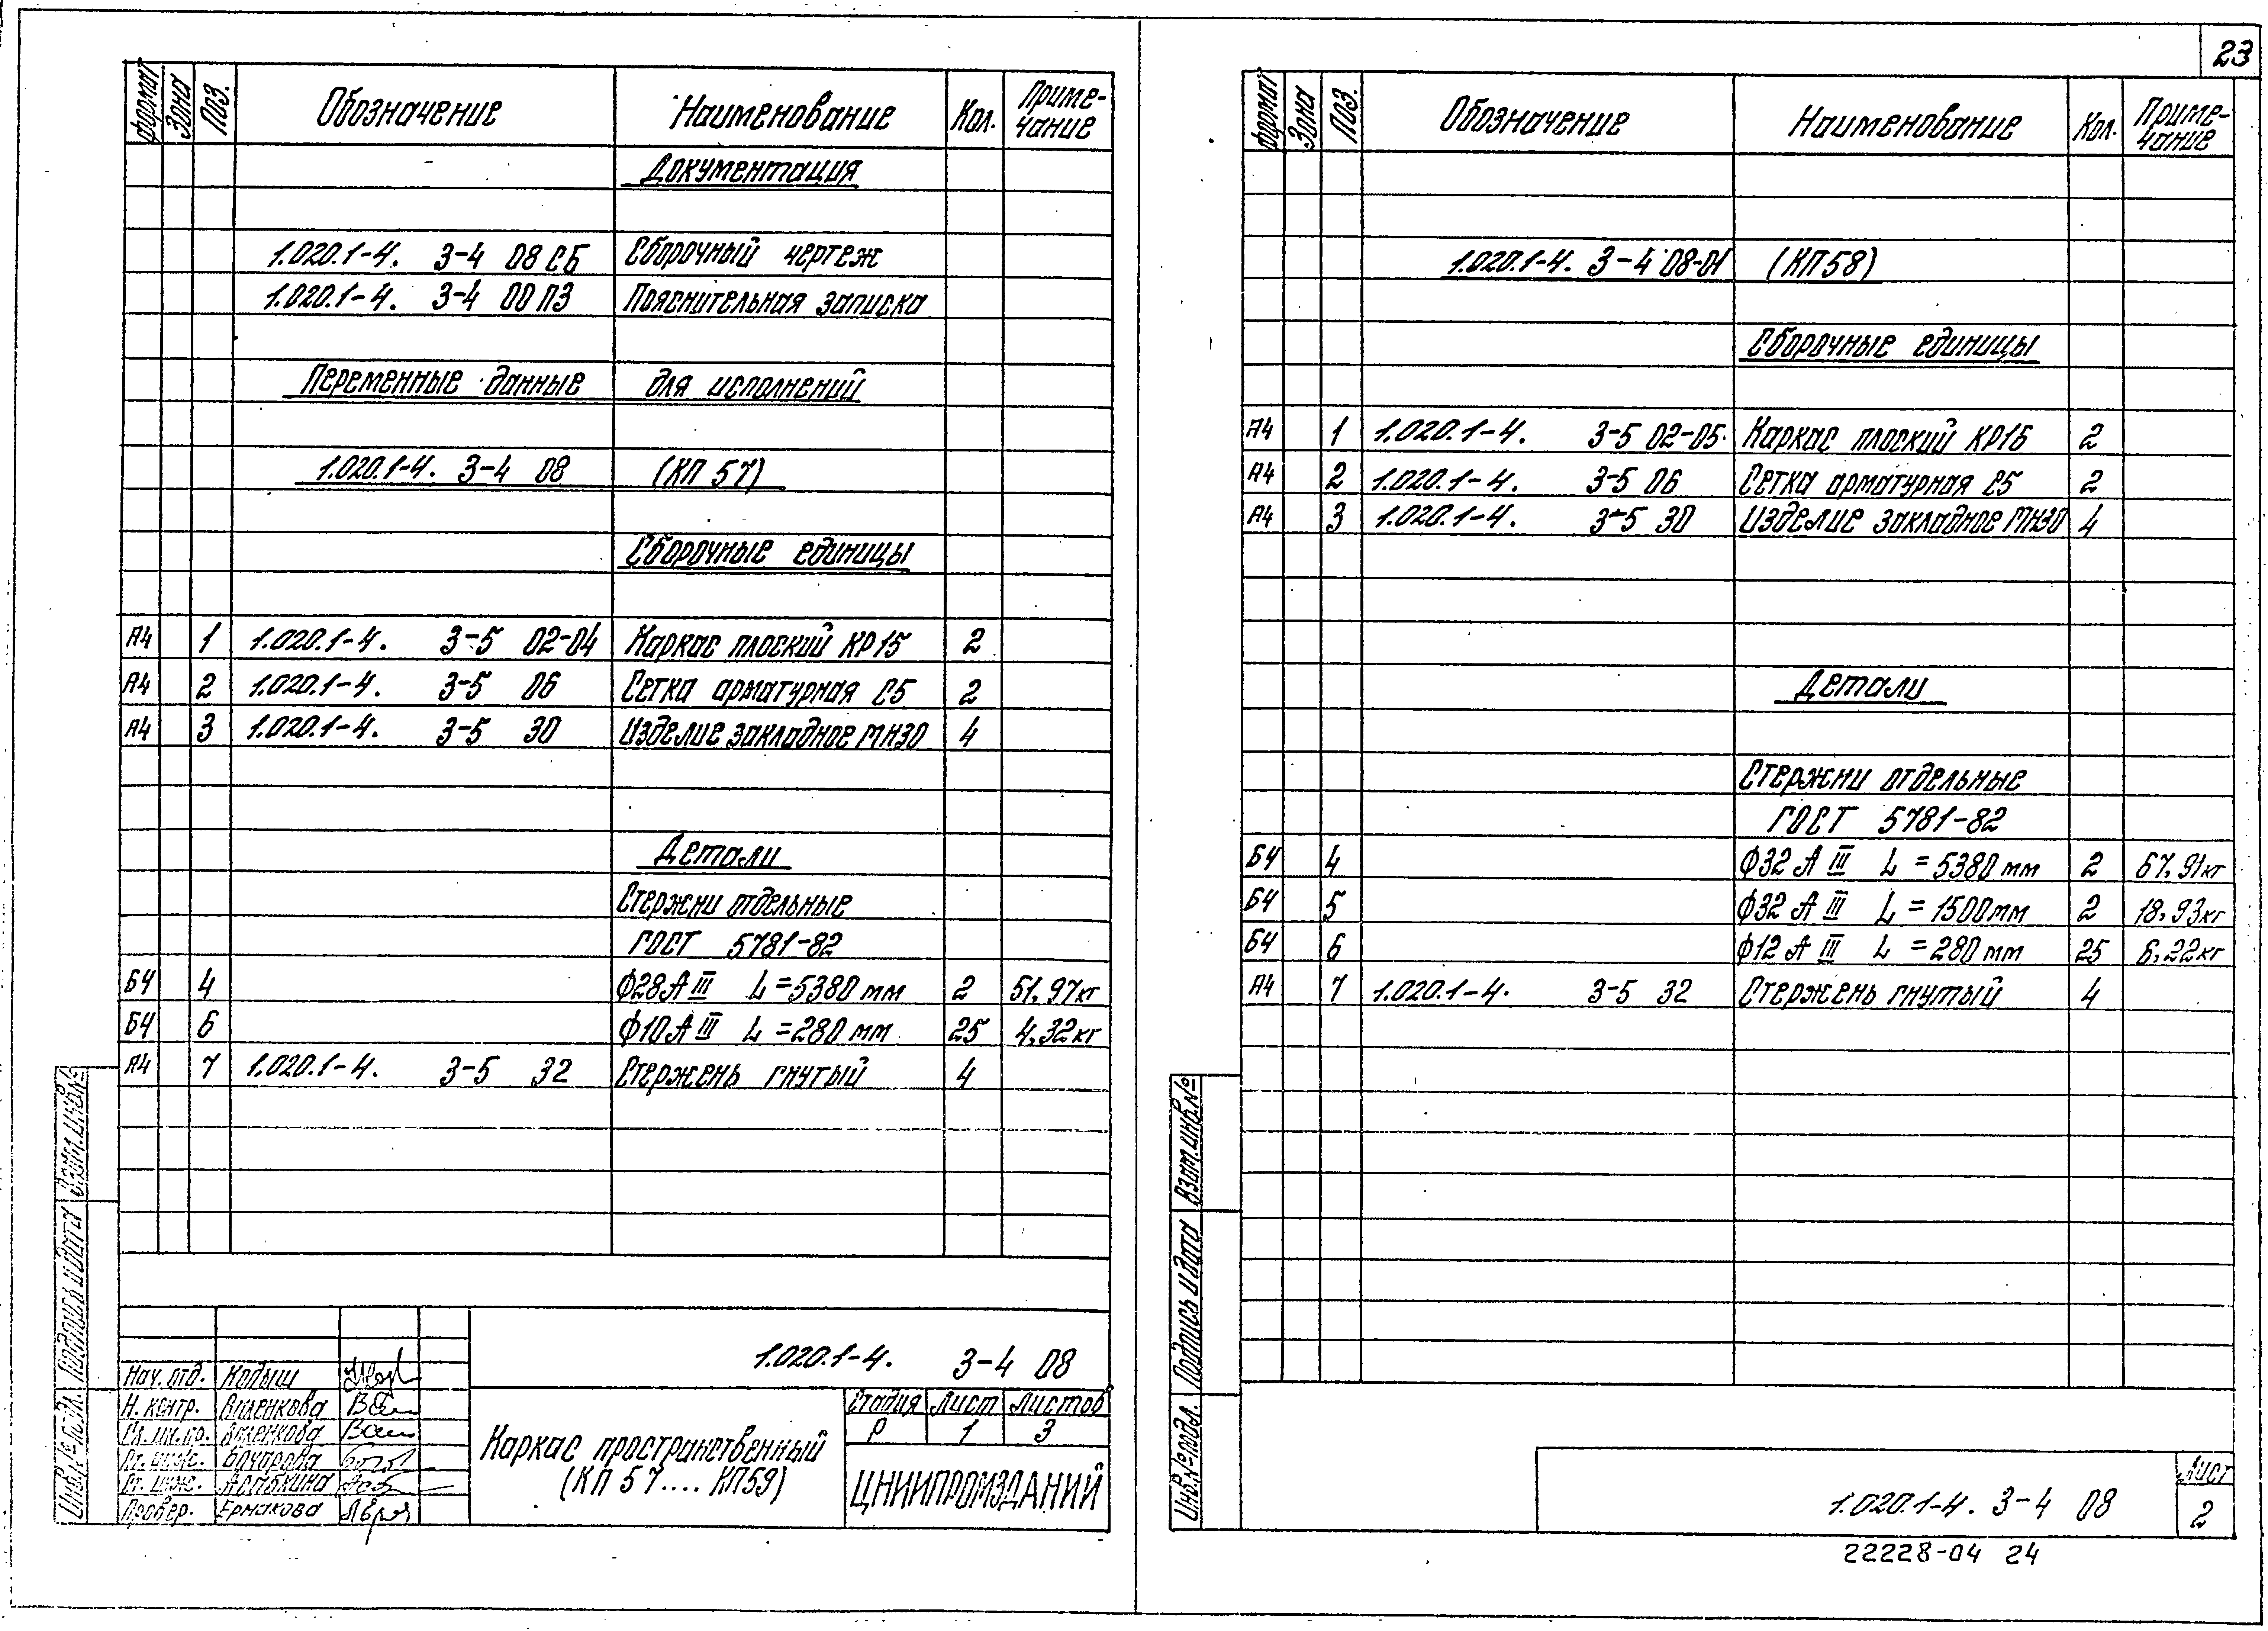 23
формат Зона Поз. Обозначение Наименование Кол. Приме-
чание
Документация
1.020.1-4. 3-4 08 СБ Сборочный чертеж
1.020.1-4. 3-4 00 ПЗ Пояснительная записка
Переменные данные для исполнений
1.020.1-4. 3-4 08 (КП 57)
Сборочные единицы
А4 1 1.020.1-4. 3-5 02-04 Каркас плоский КР15 2
А4 2 1.020.1-4. 3-5 06 Сетка арматурная С5 2
А4 3 1.020.1-4. 3-5 30 Изделие закладное МН30 4
Детали
Стержни отдельные
ГОСТ 5781-82
БЧ 4 Ф28 А III L=5380 мм 2 51,97кг
БЧ 6 Ф10 А III L=280 мм 25 4,32кг
А4 7 1.020.1-4. 3-5 32 Стержень гнутый 4
Взам.инв.№
Подпись и дата
Инв.№ подл.
1.020.1-4. 3-4 08
Нач. отд. Кодыш
Н. контр. Виленкова
Гл. ин. пр. Виленкова
Ст. инж.
Ст. инж.
Провер. Ермакова
Каркас пространственный
(КП 57.... КП59)
Стадия Лист Листов
Р 1 3
ЦНИИПРОМЗДАНИЙ
формат Зона Поз. Обозначение Наименование Кол. Приме-
чание
1.020.1-4. 3-4 08-01 (КП58)
Сборочные единицы
А4 1 1.020.1-4. 3-5 02-05 Каркас плоский КР16 2
А4 2 1.020.1-4. 3-5 06 Сетка арматурная С5 2
А4 3 1.020.1-4. 3-5 30 Изделие закладное МН30 4
Детали
Стержни отдельные
ГОСТ 5781-82
БЧ 4 Ф32 А III L=5380 мм 2 67,91кг
БЧ 5 Ф32 А III L=1500мм 2 18,93кг
БЧ 6 Ф12 А III L=280 мм 25 6,22кг
А4 7 1.020.1-4. 3-5 32 Стержень гнутый 4
Взам.инв.№
Подпись и дата
Инв.№подл.
1.020.1-4. 3-4 08
Лист
2
22228-04 24